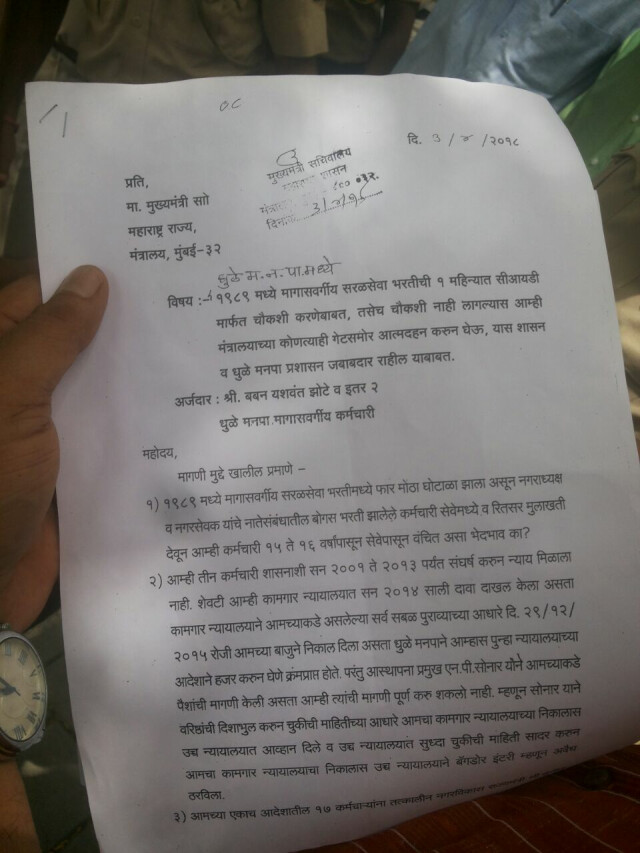 OC
दि. ३ / ४ /२०१८
मुख्यमंत्री सचिवालय
शासन
दिनांक ३/४/१८
प्रति,
मा. मुख्यमंत्री सो
महाराष्ट्र राज्य,
मंत्रालय, मुंबई-३२
धुळे म.न.पा.मध्ये
विषय :- १९८९ मध्ये मागासवर्गीय सरळसेवा भरतीची १ महिन्यात सीआयडी
मार्फत चौकशी करणेबाबत, तसेच चौकशी नाही लागल्यास आम्ही
मंत्रालयाच्या कोणत्याही गेटसमोर आत्मदहन करुन घेऊ, यास शासन
व धुळे मनपा प्रशासन जबाबदार राहील याबाबत.
अर्जदार : श्री. बबन यशवंत झोटे व इतर २
धुळे मनपा मागासवर्गीय कर्मचारी
महोदय,
मागणी मुद्दे खालील प्रमाणे –
१) १९८९ मध्ये मागासवर्गीय सरळसेवा भरतीमध्ये फार मोठा घोटाळा झाला असून नगराध्यक्ष
व नगरसेवक यांचे नातेसंबंधातील बोगस भरती झालेले कर्मचारी सेवेमध्ये व रितसर मुलाखती
देवून आम्ही कर्मचारी १५ ते १६ वर्षापासून सेवेपासून वंचित असा भेदभाव का?
२) आम्ही तीन कर्मचारी शासनाशी सन २००१ ते २०१३ पर्यंत संघर्ष करुन न्याय मिळाला
नाही. शेवटी आम्ही कामगार न्यायालयात सन २०१४ साली दावा दाखल केला असता
कामगार न्यायालयाने आमच्याकडे असलेल्या सर्व सबळ पुराव्याच्या आधारे दि. २९/१२/
२०१५ रोजी आमच्या बाजुने निकाल दिला असता धुळे मनपाने आम्हास पुन्हा न्यायालयाच्या
आदेशाने हजर करुन घेणे क्रमप्राप्त होते. परंतु आस्थापना प्रमुख एन.पी.सोनार यांने आमच्याकडे
पैशांची मागणी केली असता आम्ही त्यांची मागणी पूर्ण करु शकलो नाही. म्हणून सोनार याने
वरिष्ठांची दिशाभुल करुन चुकीची माहितीच्या आधारे आमचा कामगार न्यायालयाच्या निकालास
उच्च न्यायालयात आव्हान दिले व उच्च न्यायालयात सुध्दा चुकीची माहिती सादर करुन
आमचा कामगार न्यायालयाचा निकालास उच्च न्यायालयाने बॅगडोर इंटरी म्हणून अवैध
ठरविला.
३) आमच्या एकाच आदेशातील १७ कर्मचाऱ्यांना तत्कालीन